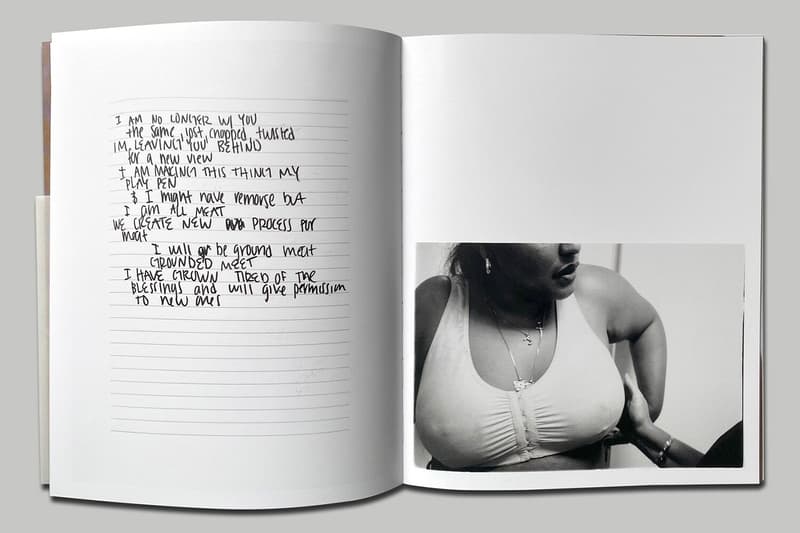 I AM NO LONGER W/ YOU
the same, lost, chopped, twisted
IM, LEAVING YOU BEHIND
for a new view
I AM MAKING THIS THING MY
PLAY PEN
& I might have remorse but
I am ALL MEAT
WE CREATE NEW PROCESS for
meat
I will be ground meat
GROUNDED MEET
I HAVE GROWN TIRED OF THE
BLESSINGS and will give permission
to new ones